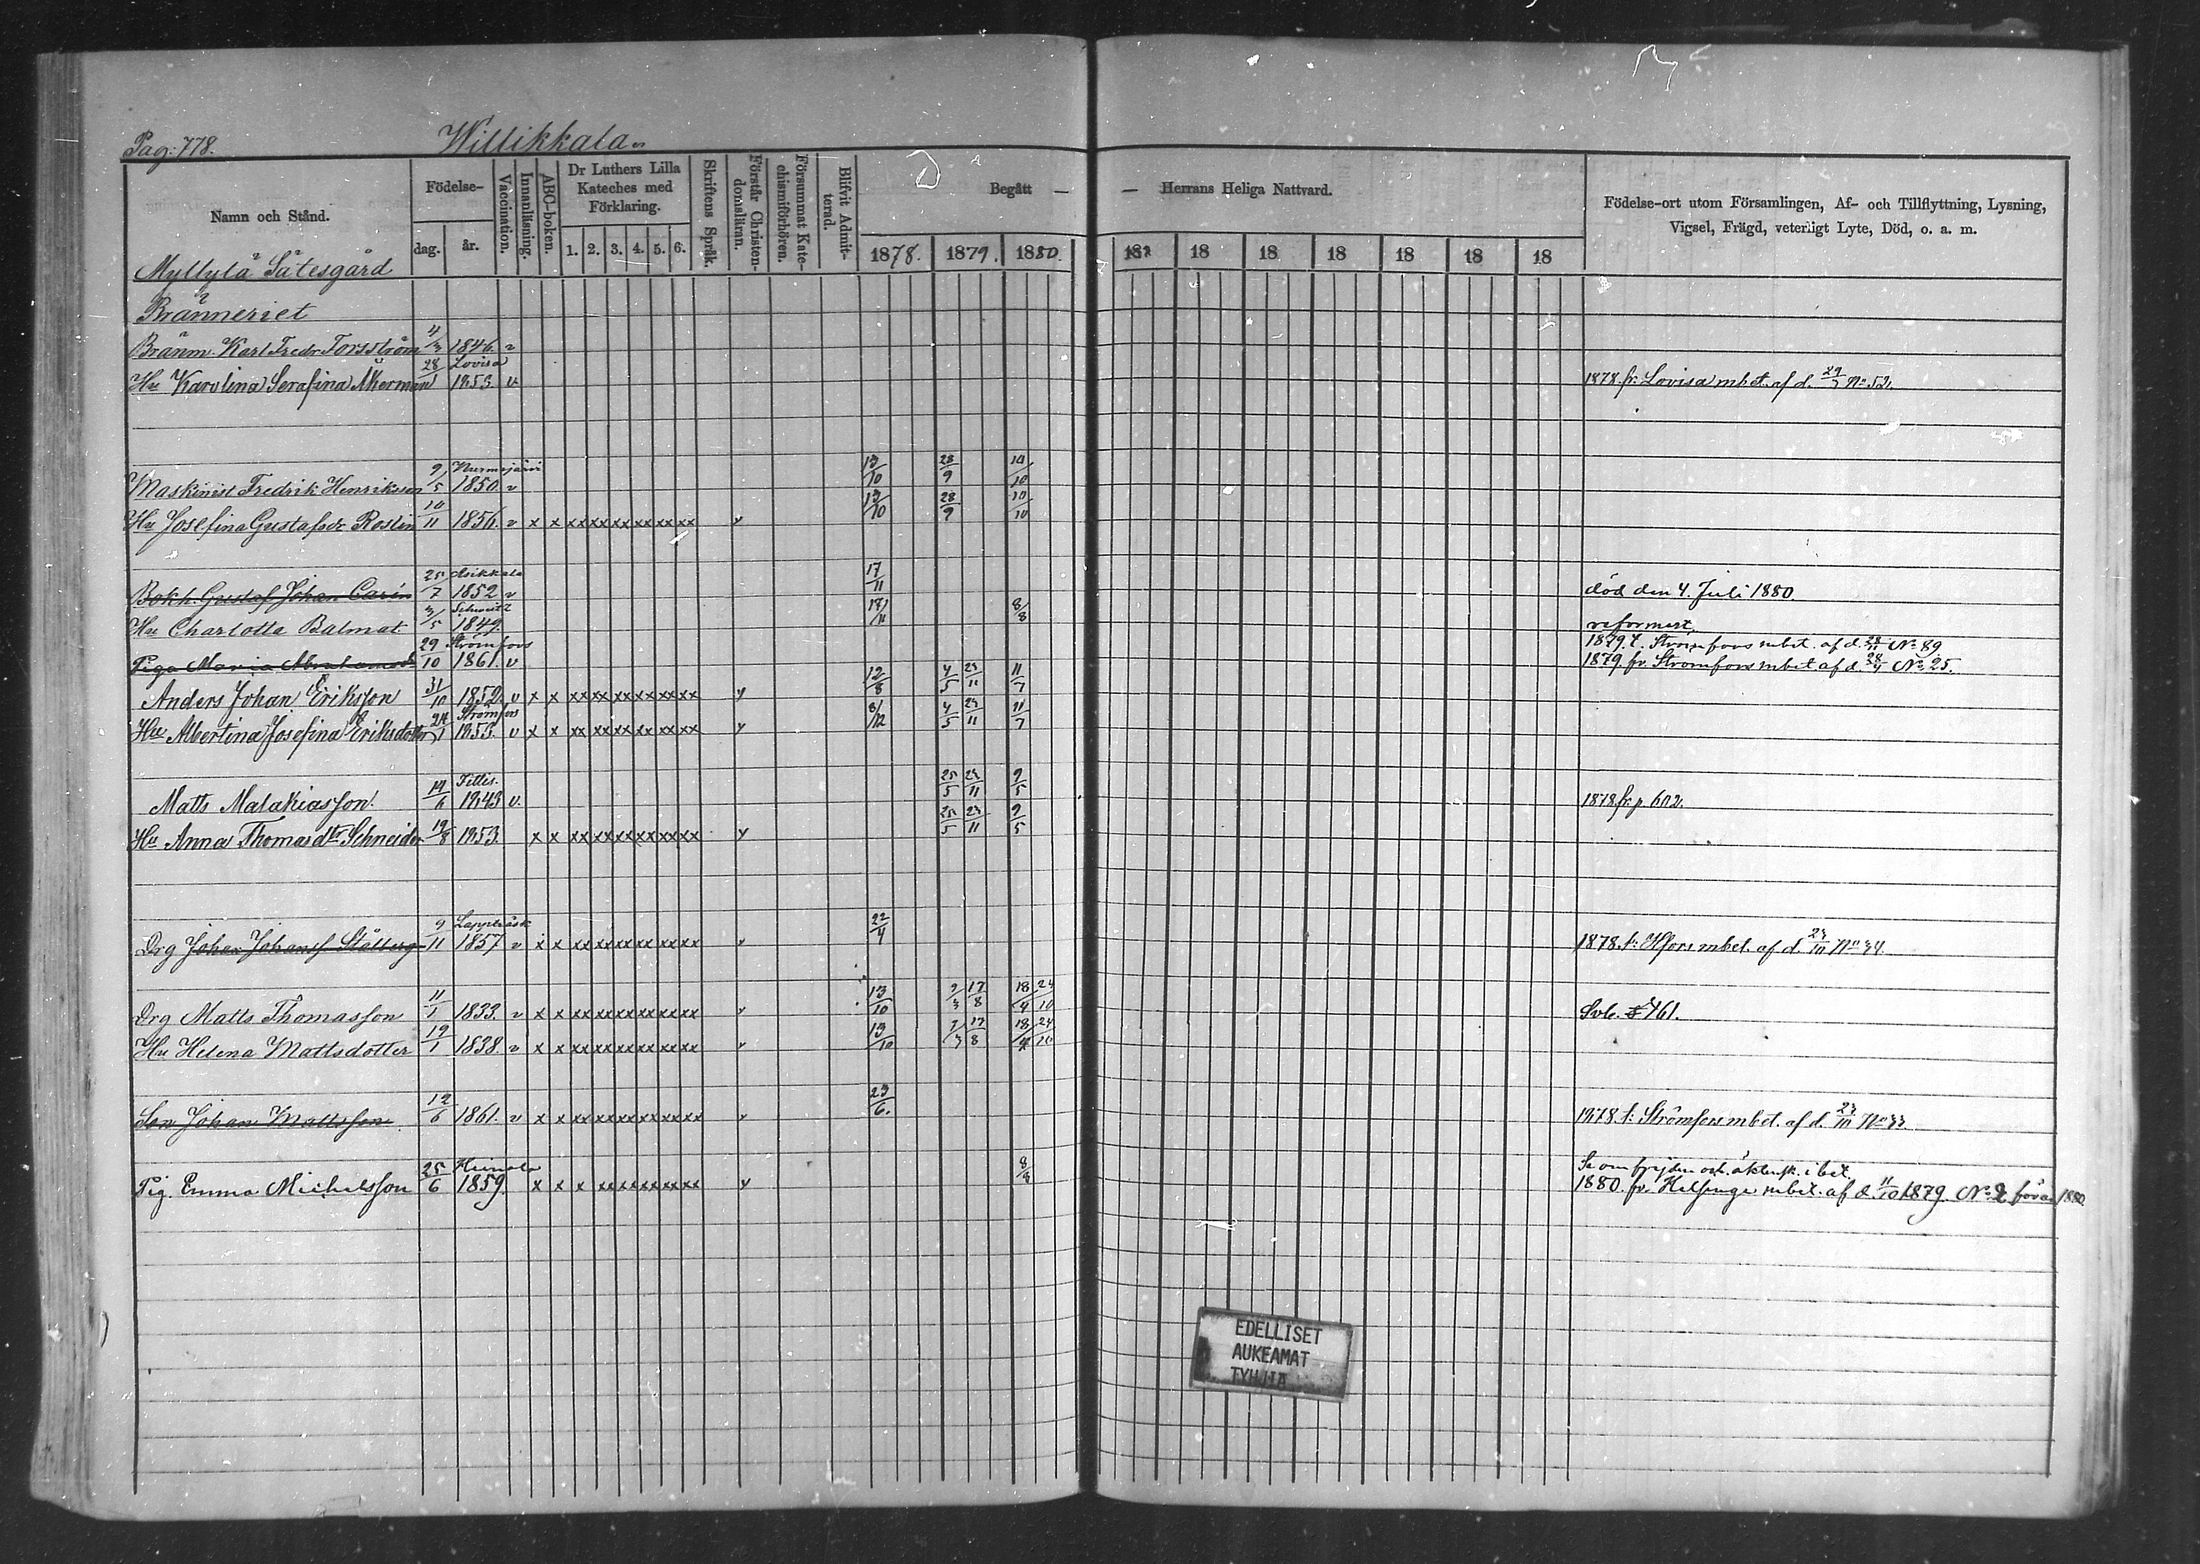 Pag: 778. Willikkala
Namn och Stånd. Födelse- dag. år. Vaccination. Innanläsning. ABC-boken. Dr Luthers Lilla Kateches med Förklaring. 1. 2. 3. 4. 5. 6. Skriftens Språk. Förstår Christendomsläran. Försummat Katechismiförhören. Blifvit Admitterad. Begått — — Herrans Heliga Nattvard. 1878. 1879. 1880. 18 18 18 18 18 18 Födelse-ort utom Församlingen, Af- och Tillflyttning, Lysning, Vigsel, Frägd, veterligt Lyte, Död, o. a. m.
Myllylä Sätesgård
Bränneriet
Bränm. Karl Fredr Torsström 4/3 1846. v
Hu Karolina Serafina Åkerman 28/1 Lovisa 1853. v 1878. fr. Lovisa mbet. af d. No 52.
Maskinist Fredrik Henriksson 9/5 Nurmijärvi 1850. v 13/10 28/9 10/10
Hu Josefina Gustafsdr Roslin 10/11 1856. v x x xx xx xx xx xx xx v 13/10 28/9 10/10
Bokh. Gustaf Johan Carén 25/7 Asikkala 1852 v 17/11 död den 4. Juli 1880.
Hu Charlotta Balmat 3/5 Schweitz 1849. 17/11 8/8 reformert
1879. t. Strömfors mbet. af d. 28/11 No 89
Piga Maria Abrahamsdr 29/10 Strömfors 1861. v 1879. fr. Strömfors mbet af d. 28/4 No 25.
Anders Johan Eriksson 31/10 1852. v x x xx xx xx xx xx xx v 12/8 4/5 23/11 11/7
Hu Albertina Josefina Eriksdotter 24/1 Strömfors 1853. v x x xx xx xx xx xx xx v 8/12 4/5 23/11 11/7
Matts Malakiasson. 14/6 1843 v. 25/5 23/11 9/5 1878. fr. p. 602.
Hu Anna Thomasdtr Schneider 19/8 1853. x x xx xx xx xx xx xx v 25/5 23/11 9/5
Drg Johan Johansf Ståtberg 9/11 Lappträsk 1857 v x x xx xx xx xx xx xx v 22/4 1878. t: Hfors mbet. af d. 23/10 No 34.
Drg Matts Thomasson 11/1 1833. v x x xx xx xx xx xx xx v 13/10 2/3 17/8 18/4 24/10 761.
Hu Helena Mattsdotter 19/1 1838. v x x xx xx xx xx xx xx v 13/10 2/3 17/8 18/4 24/10
Son Johan Mattsson 12/6 1861. v x x xx xx xx xx xx xx v 23/6. 1878. t: Strömfors mbet. af d. 23/10 No 33
Pig. Emma Michelsson 25/6 Heinola 1859. x x x xx xx xx xx xx v 8/8 Se om frejden och äktensk. i bet.
1880. fr. Helsinge mbet. af d. 11/10 1879. No 2 förän 1880
EDELLISET
AUKEAMAT
TYHJIÄ